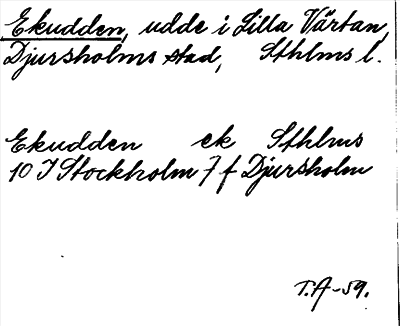 Ekudden, udde i Lilla Värtan,
Djursholms stad, Sthlms l.
Ekudden ek Sthlms
10 I Stockholm 7 f Djursholm
T.A-59.